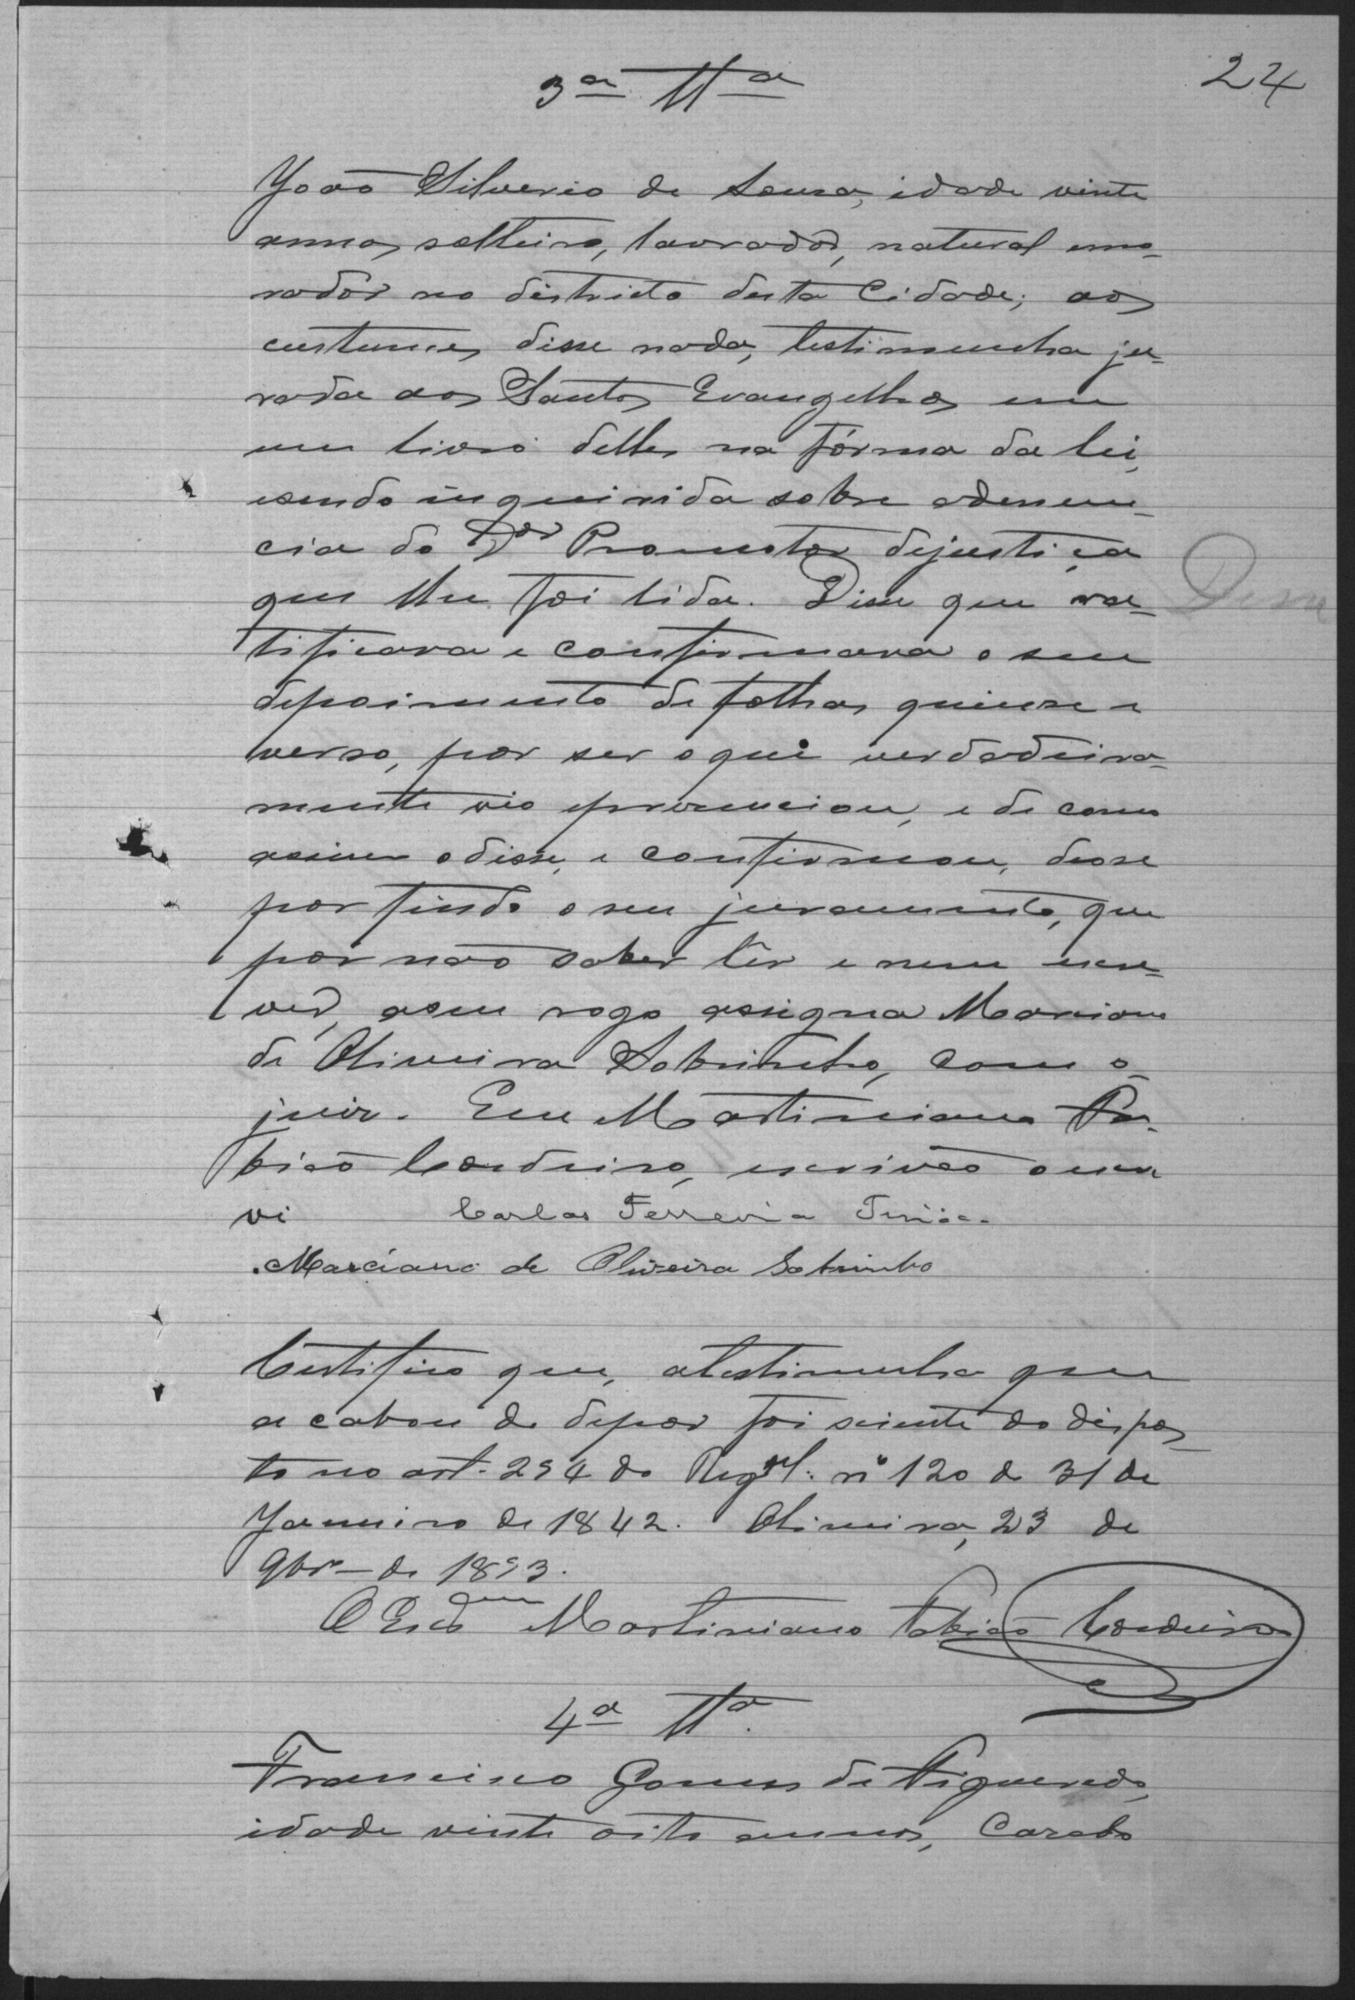 24
3ª Ttª
João Silverio de Sousa, idade vinte
annos, solteiro, lavrador, natural e mo-
rador no districto desta Cidade; aos
custumes disse nada, testimunha ju-
rada aos Santos Evangelhos em
um livro delles na fórma da lei,
e sendo inquirida sobre a denun-
cia do Dor Promotor de justiça
que lhe foi lida. Disse que ra-
tificava e confirmava o seu
depoimento de folhas quinse e
verso, por ser o que verdadeira-
mente vio e presenciou, e de como
assim o disse, e confirmou, deose
por findo o seu juramento, que
por não saber lêr e nem escre-
ver, a seu rogo assigna Marciano
de Oliveira Sobrinho, com o
juiz. Eu Martiniano Fa-
bião Cordeiro, escrivão o escre
vi Carlos Ferreira
Marciano de Oliveira Sobrinho
Certifico que, a testimunha que
acabou de depor foi sciente do dispos-
to no art. 294 do Regul. nº 120 de 31 de
Janeiro de 1842. Oliveira, 23 de
9brº de 1893.
O Escam Martiniano Fabião Cordeiro
4ª Ttª
Francisco Gomes de Figueredo,
idade vinte oito annos, Casado